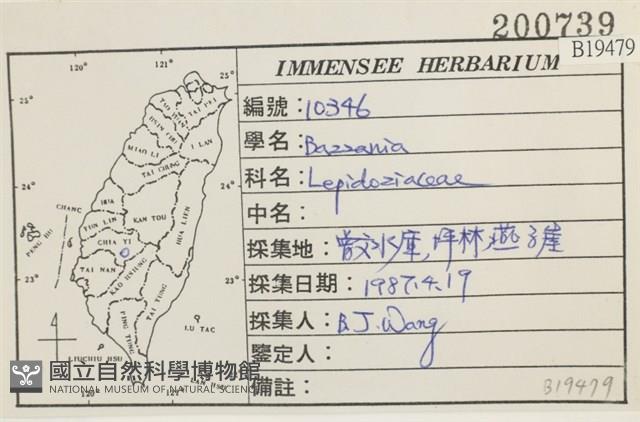 200739
B19479
IMMENSEE HERBARIUM
編號：10346
學名：Bazzania
科名：Lepidoziaceae
中名：
採集地：曾文水庫，坪林，燕子崖
採集日期：1987.4.19
採集人：B.J.Wang
鑒定人：
備註：
B19479
120°
121°
25°
25°
TAI PEI
I LAN
MIAO LI
TAI CHUNG
24°
24°
CHANG
HUA
NAN TOU
YUN LIN
HUA LIEN
PENG HU
CHIA YI
TAI NAN
KAO HSIUNG
23°
23°
TAI TUNG
PING TUNG
LU TAC
LIUCHIU HSU
120°
121°
國立自然科學博物館
NATIONAL MUSEUM OF NATURAL SCIENCE